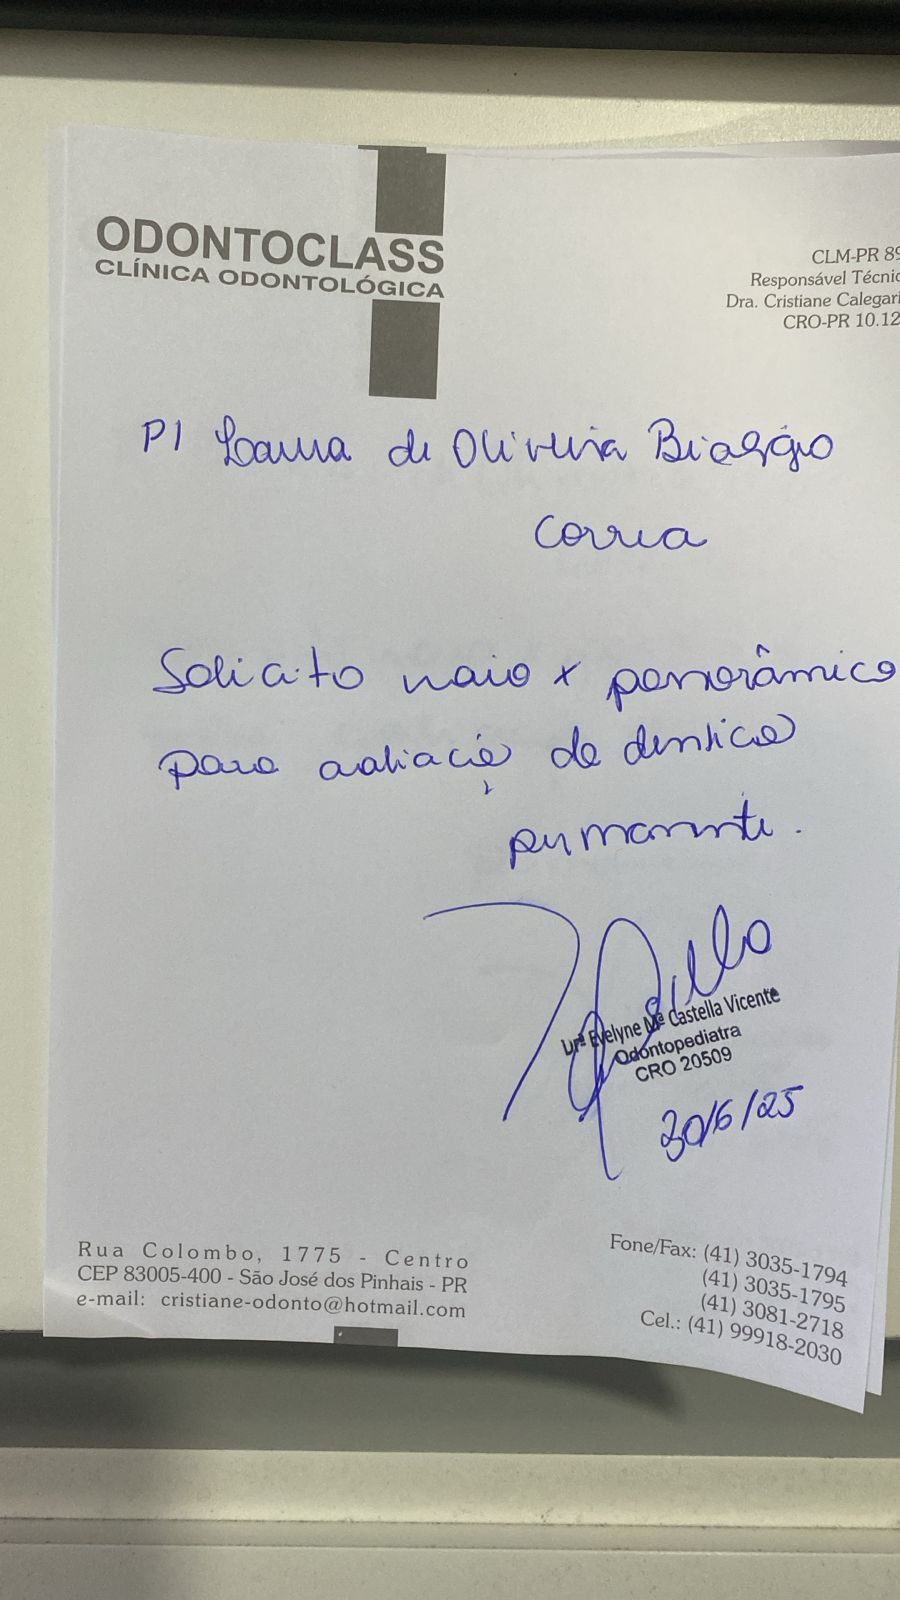 ODONTOCLASS
CLÍNICA ODONTOLÓGICA
CLM-PR 89
Responsável Técnic
Dra. Cristiane Calegari
CRO-PR 10.12
P/ de Oliveira
Correa
Solicito raio x panorâmico
para avaliação da dentição
permanente.
Drª Evelyne Mª Castella Vicente
Odontopediatra
CRO 20509
30/6/25
Rua Colombo, 1775 - Centro
CEP 83005-400 - São José dos Pinhais - PR
e-mail: cristiane-odonto@hotmail.com
Fone/Fax: (41) 3035-1794
(41) 3035-1795
(41) 3081-2718
Cel.: (41) 99918-2030